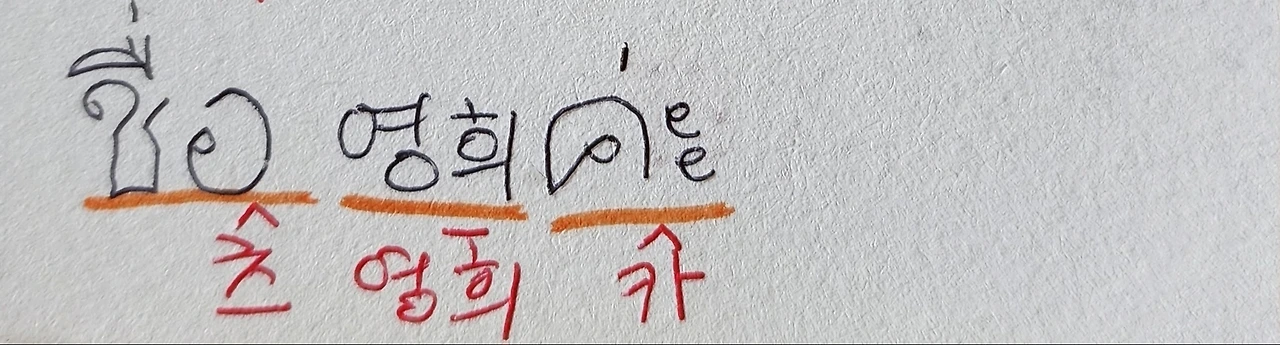 ชื่อ 영희 ค่ะ
츠 영희 카